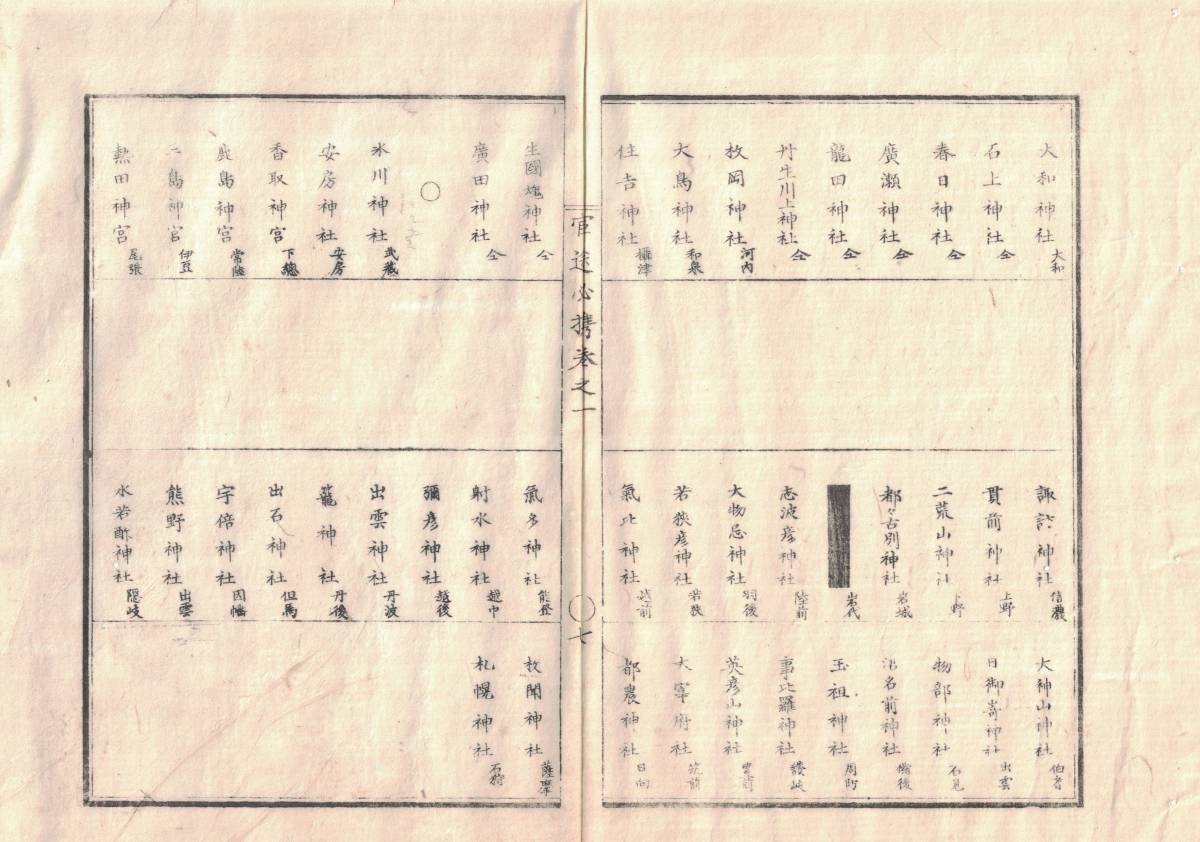 大和神社 大和
石上神社 仝
春日神社 仝
廣瀬神社 仝
龍田神社 仝
丹生川上神社 仝
枚岡神社 河內
大鳥神社 和泉
住吉神社 攝津
諏訪神社 信濃
貫前神社 上野
二荒山神社 下野
都々古別神社 岩城
岩代
志波彦神社 陸前
大物忌神社 羽後
若狹彦神社 若狹
氣比神社 越前
大神山神社 伯耆
日御崎神社 出雲
物部神社 石見
沼名前神社 備後
玉祖神社 周防
事比羅神社 讃岐
英彦山神社 豊前
大宰府社 筑前
都農神社 日向
官途必携卷之一
〇七
生國魂神社 仝
廣田神社 仝
〇
氷川神社 武藏
安房神社 安房
香取神宮 下總
鹿島神宮 常陸
三島神宮 伊豆
熱田神宮 尾張
氣多神社 能登
射水神社 越中
彌彦神社 越後
出雲神社 丹波
籠神社 丹後
出石神社 但馬
宇倍神社 因幡
熊野神社 出雲
水若酢神社 隠岐
枚聞神社 薩摩
札幌神社 石狩